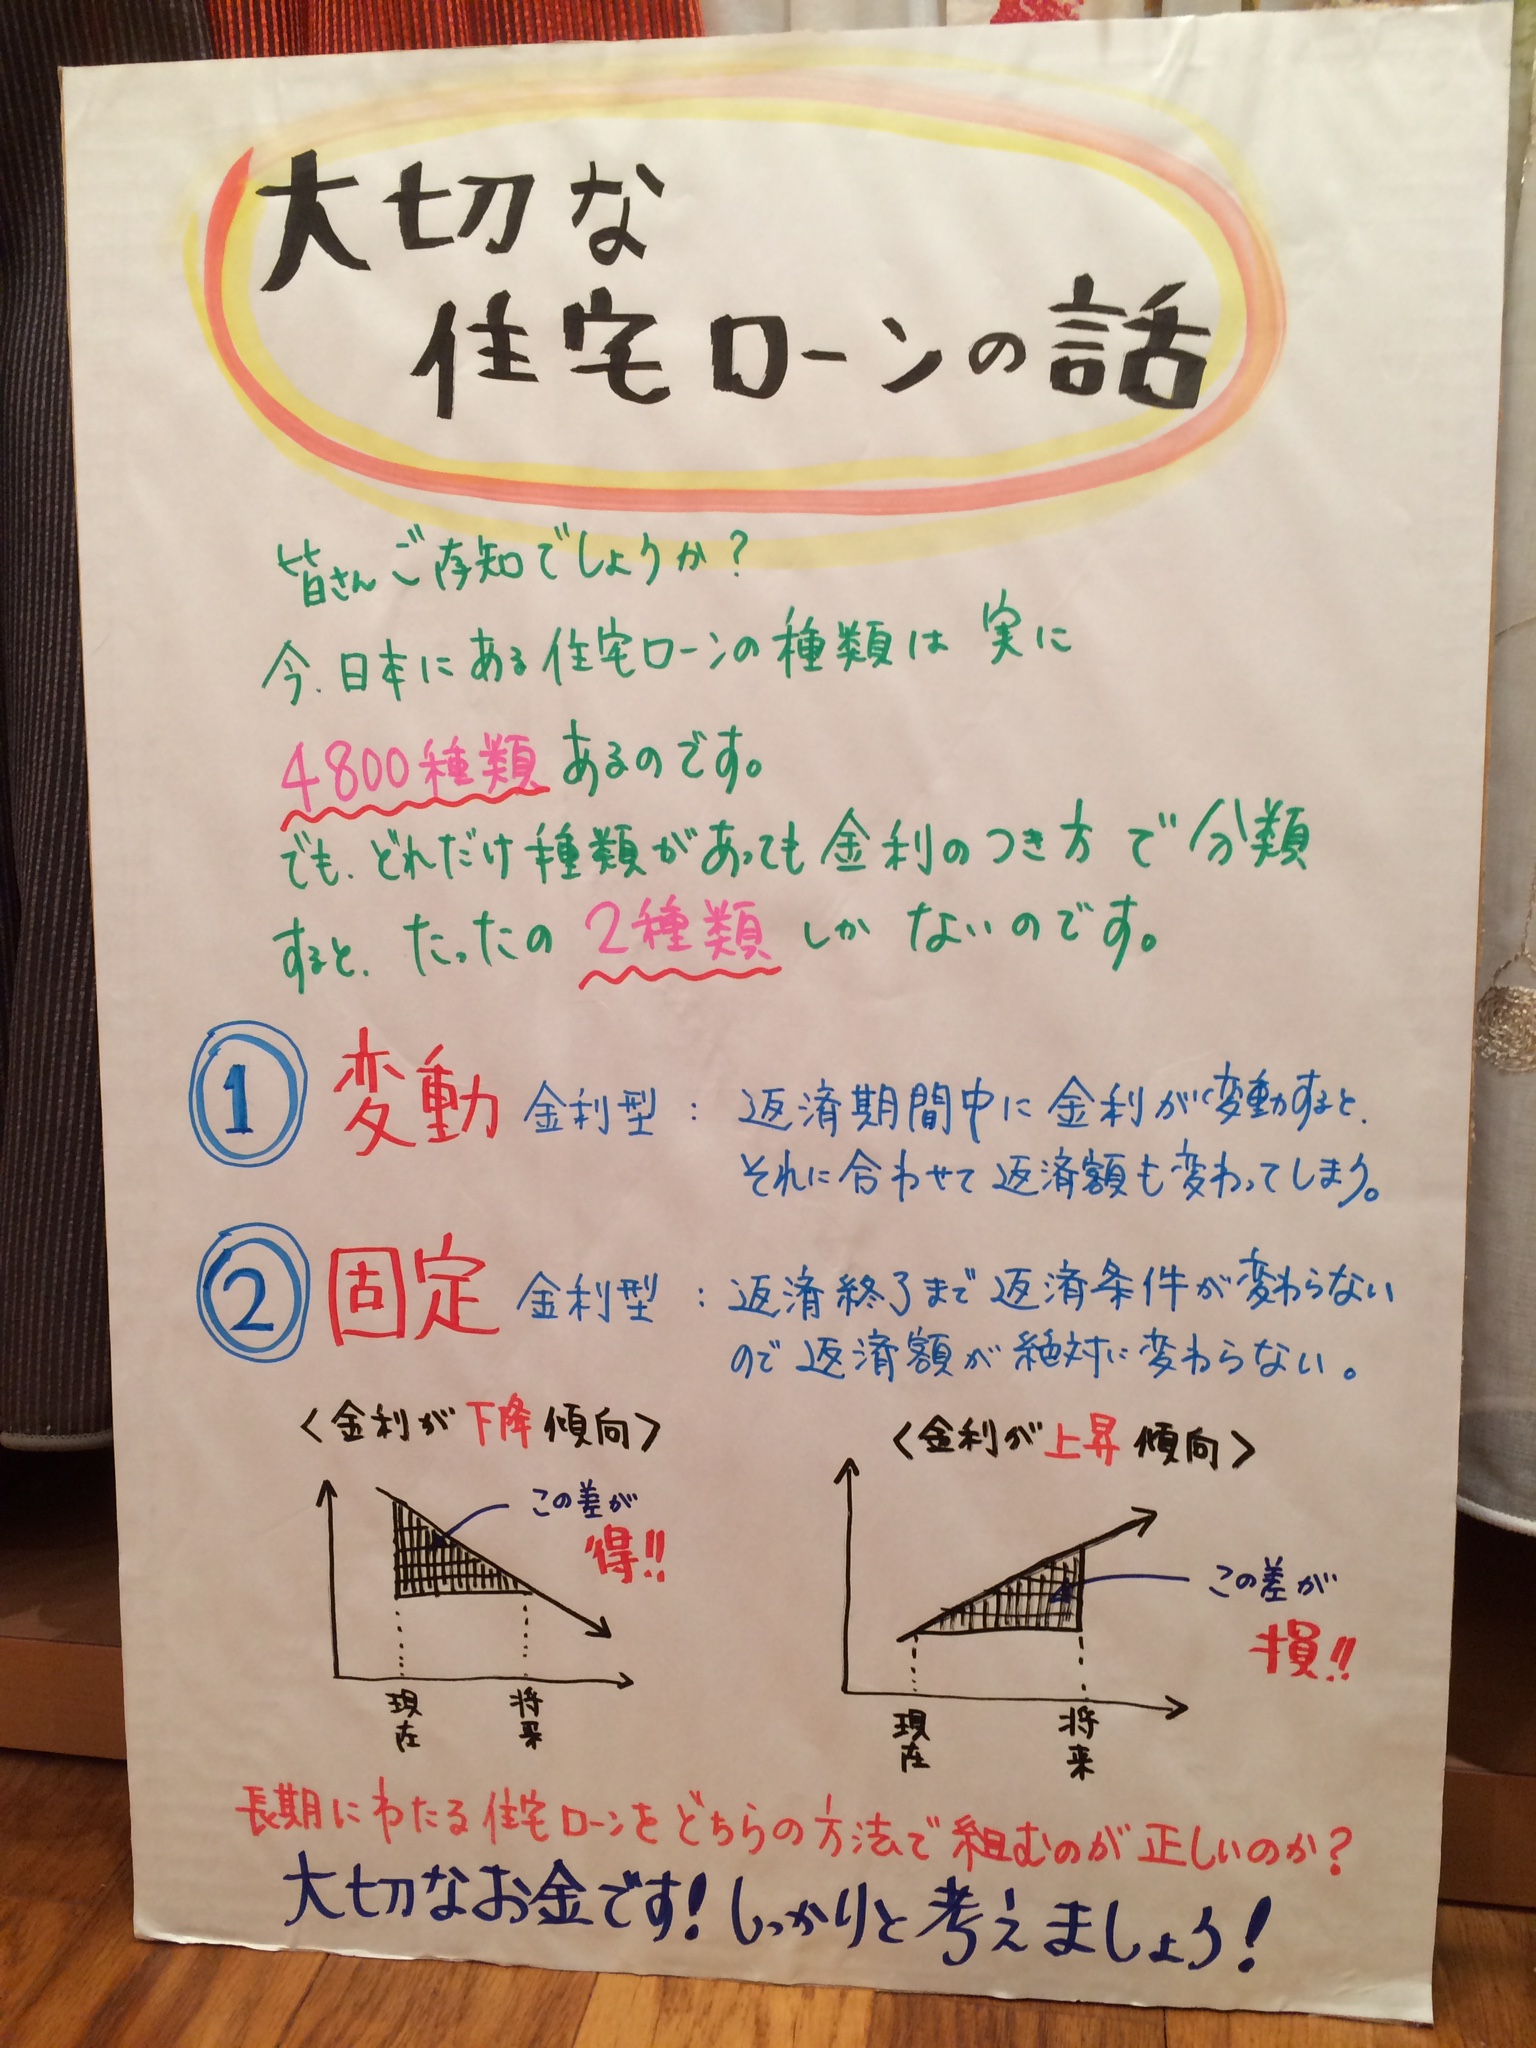 大切な
住宅ローンの話
皆さんご存知でしょうか?
今、日本にある住宅ローンの種類は実に
4800種類あるのです。
でも、どれだけ種類があっても金利のつき方で分類
すると、たったの2種類しかないのです。
① 変動金利型:返済期間中に金利が変動すると、
それに合わせて返済額も変わってしまう。
② 固定金利型:返済終了まで返済条件が変わらない
ので返済額が絶対に変わらない。
<金利が下降傾向>
この差が
得!!
現在
将来
<金利が上昇傾向>
この差が
損!!
現在
将来
長期にわたる住宅ローンをどちらの方法で組むのが正しいのか?
大切なお金です!しっかりと考えましょう!